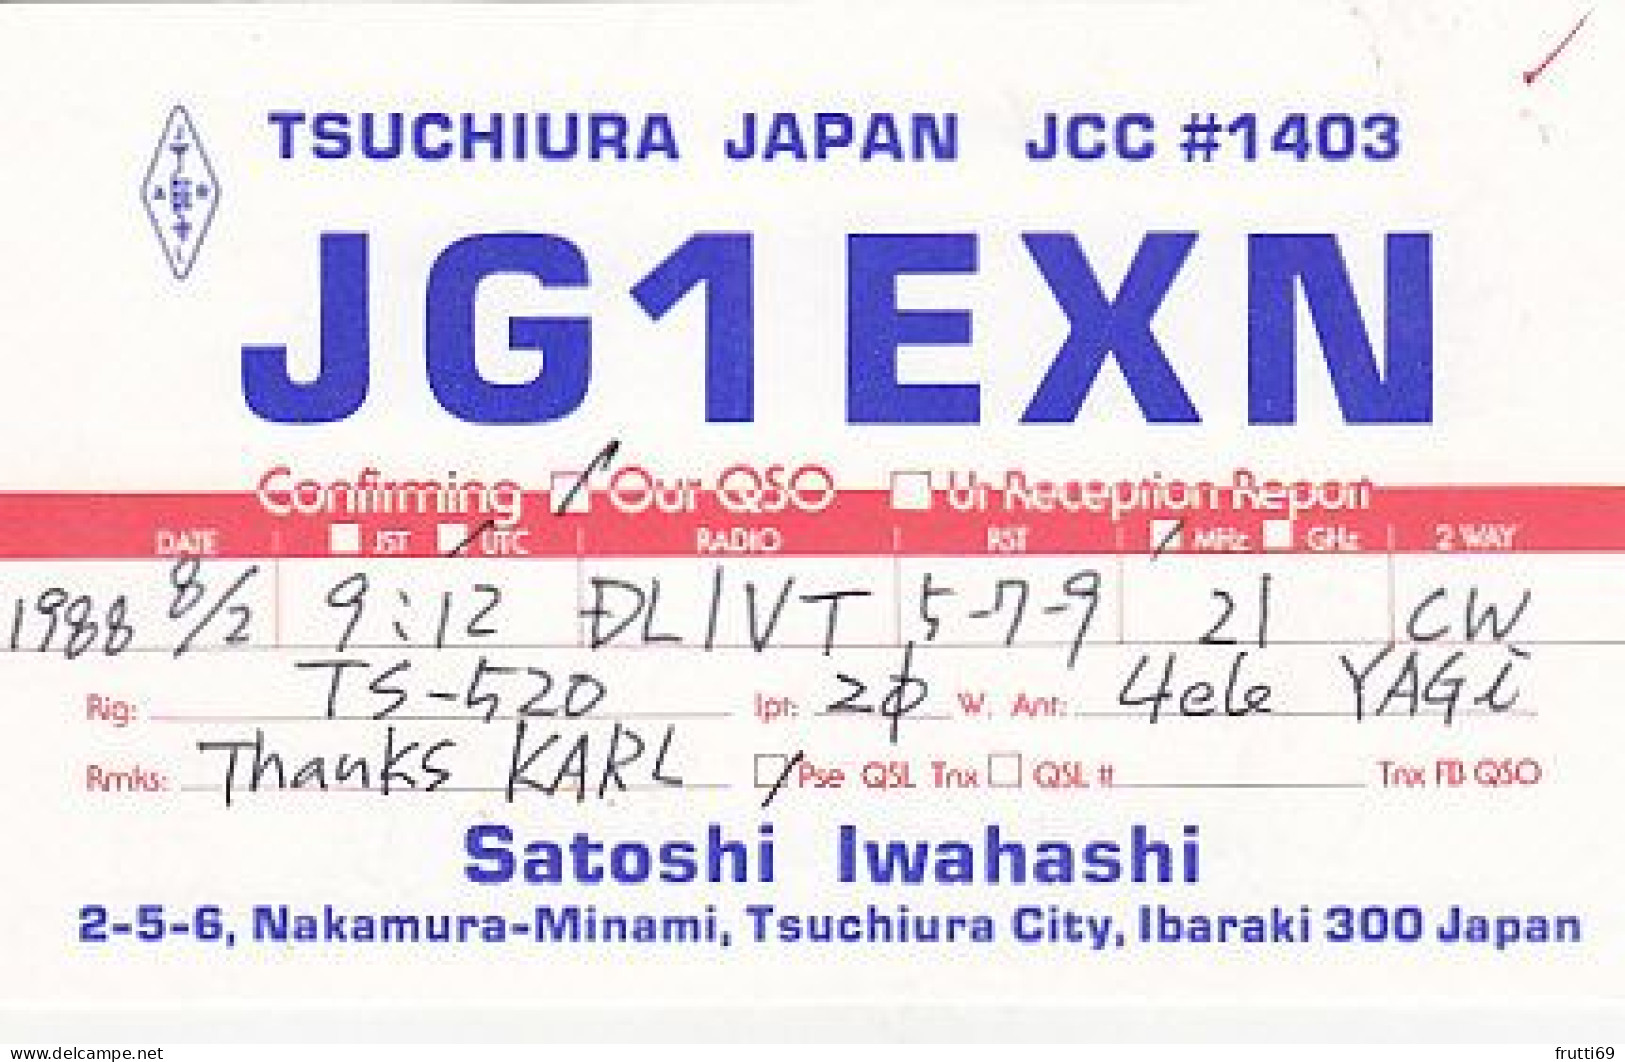 TSUCHIURA JAPAN JCC #1403
J
A R
L
JG1EXN
Confirming Our QSO Ur Reception Report
DATE JST UTC RADIO RST MHz GHz 2 WAY
1988 8/2 9:12 DL1VT 5-7-9 21 CW
Rig: TS-520 Ipt: 2φ W. Ant: 4ele YAGi
Rmks: Thanks KARL Pse QSL Tnx QSL # Tnx FB QSO
Satoshi Iwahashi
2-5-6, Nakamura-Minami, Tsuchiura City, Ibaraki 300 Japan
www.delcampe.net frutti69